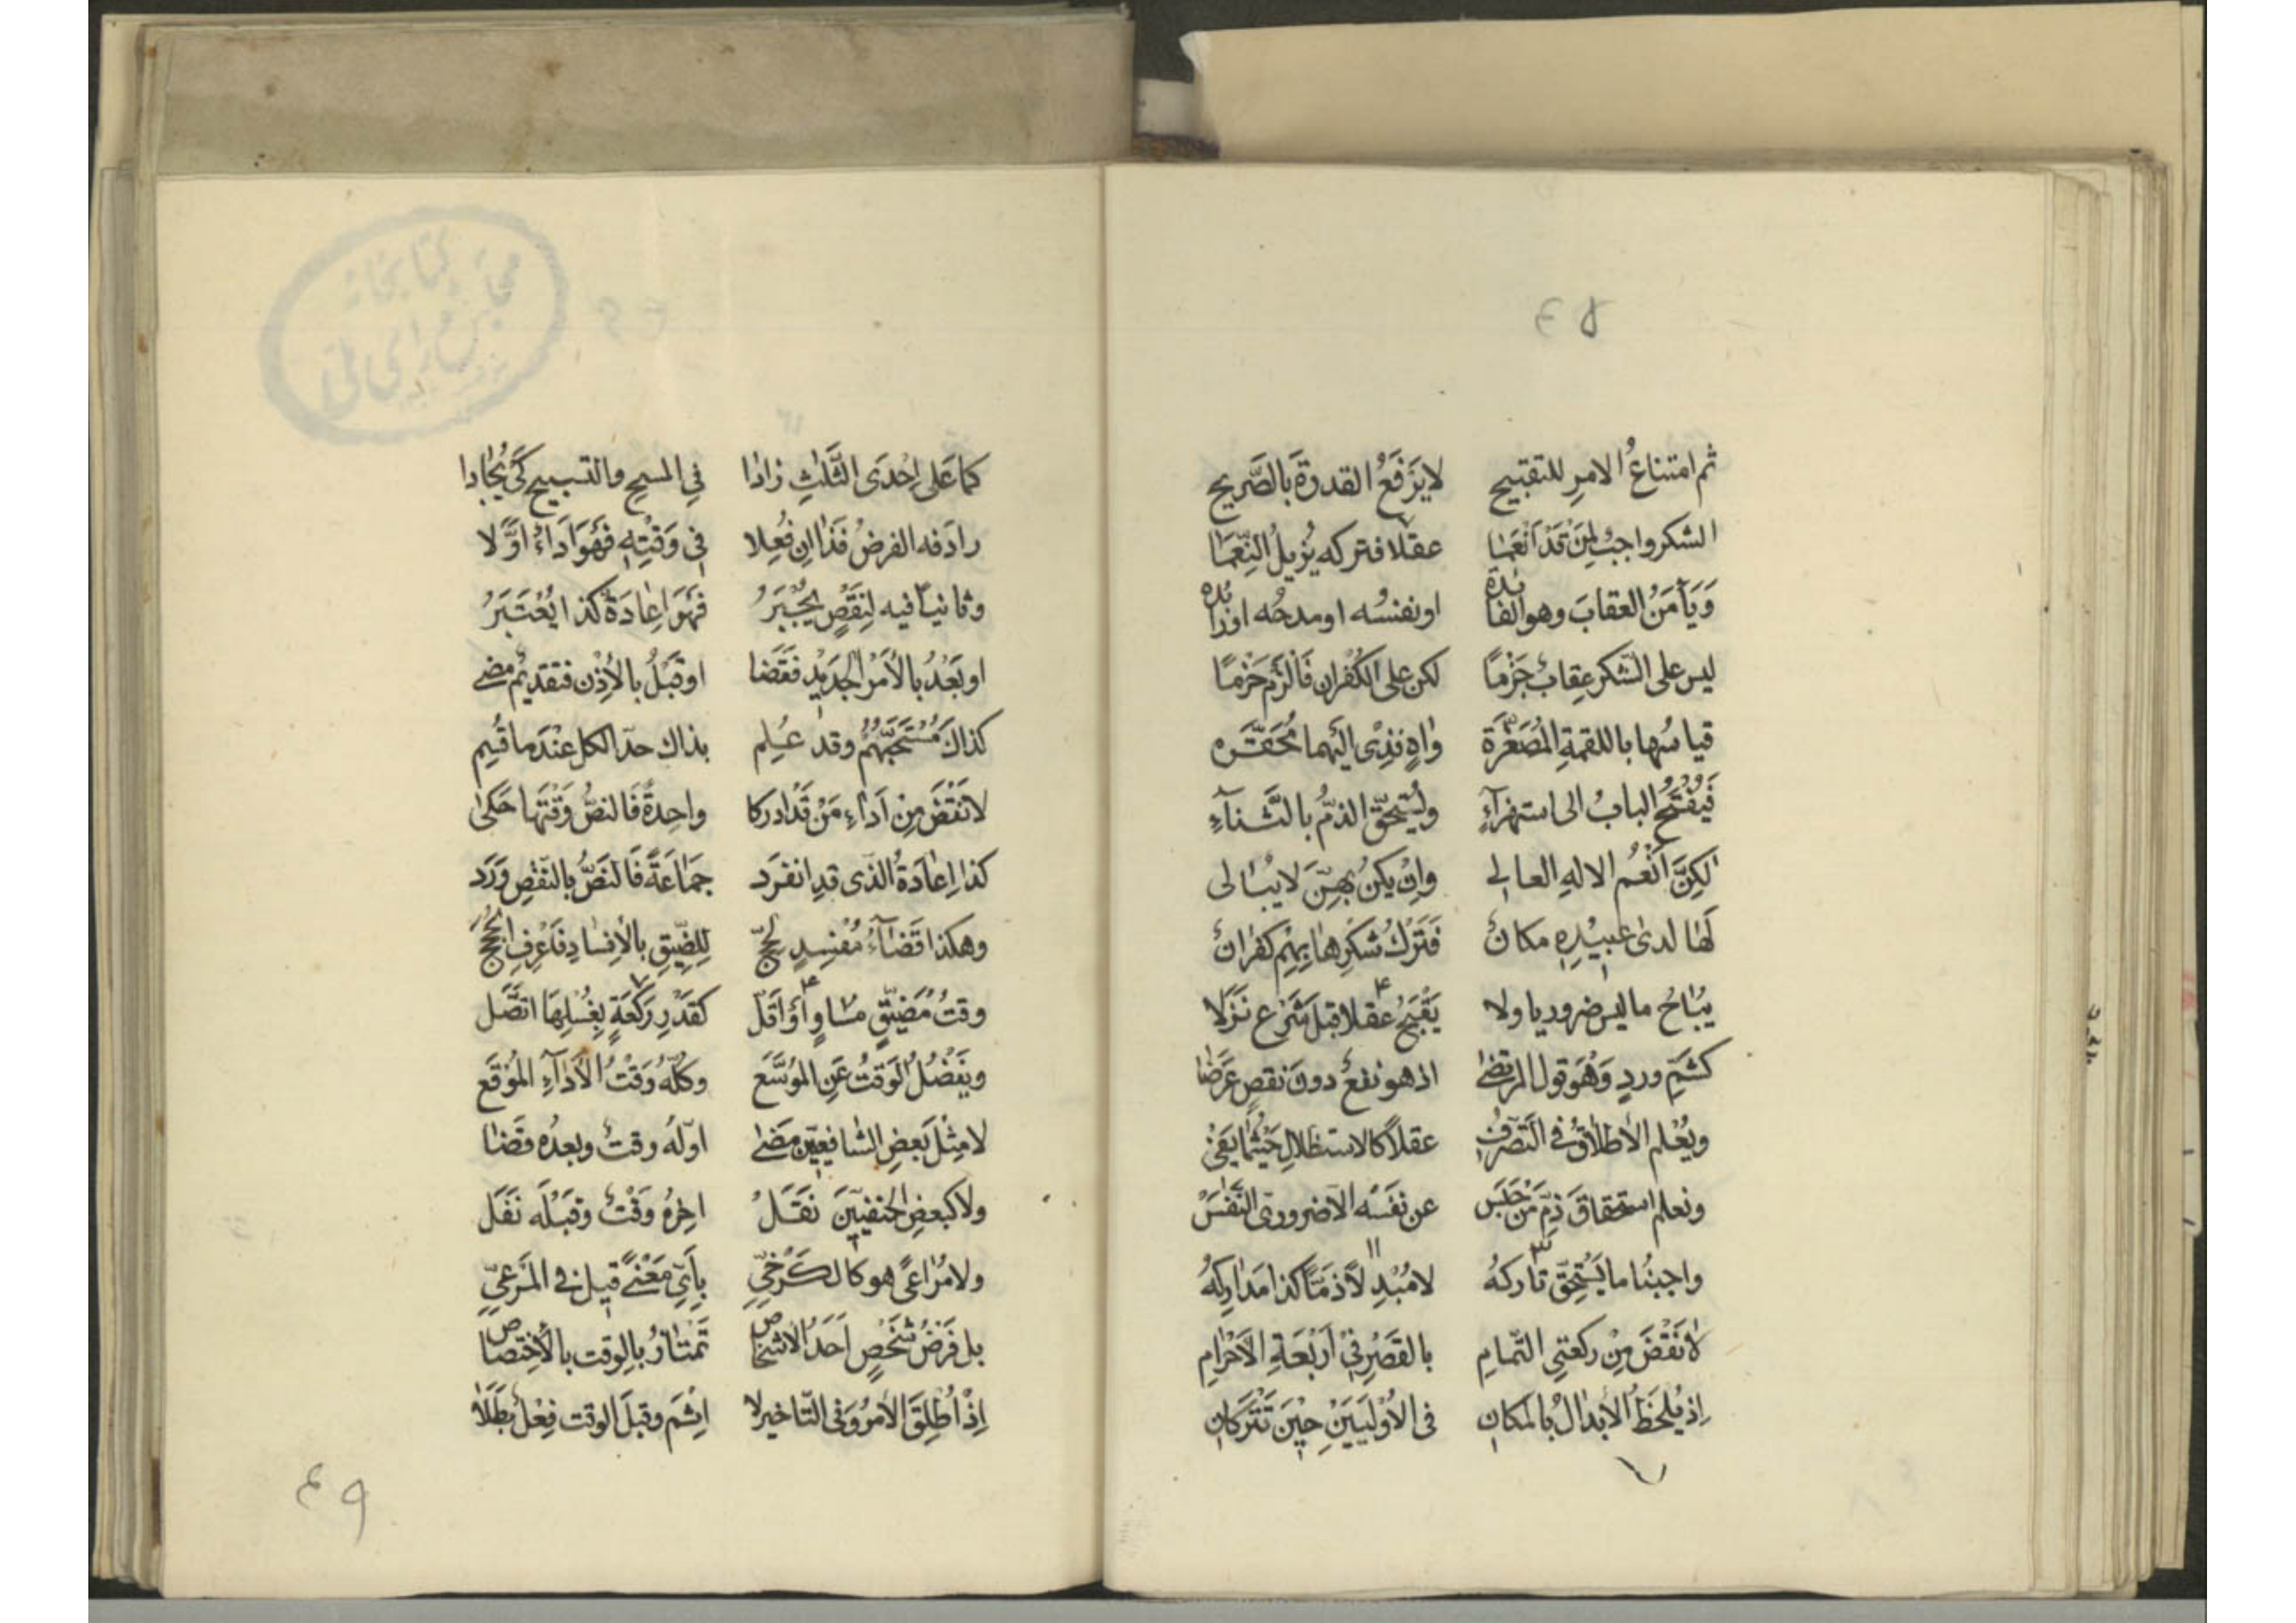 ٤٨
ثم امتناعُ الامرِ للتقبيح لا يَرْفَعُ القدرةَ بالصَّريح
الشكر واجبٌ لِمَنْ قَدْ اَنْعَمَا عقلا فتركه يُزيلُ النِّعَمَا
وَيَأمَنُ العقابَ وهو الفائدة او نفسُه او مدحُه او زائده
ليس على الشّكر عِقابٌ جَزْمًا لكن على الكُفْران فَالْزَمْ حَزْمًا
قياسُها باللقمةِ المُصَغَّرَة واهٍ فذى اليهما مُحَقَّرَه
فَيُفْتَحُ البابُ الى استهزآءِ ويُسْتَحَقّ الذمُّ بالثَّنآءِ
لكِنَّ اَنْعُمَ الالهِ العالِى وإن يكن بهنّ لا يُبالى
لَهَا لدى عبيْدِهِ مكانٌ فَتَرْكُ شُكْرِها بِهِمْ كفرانٌ
يُبَاحُ ما ليس ضروريا ولا يَقْبَحُ عقلا قبلَ شَرْعٍ نَزَلَا
كشَمِّ وردٍ وَهُوَ قول المرتضى اذ هو نفعٌ دونَ نقصٍ عَرَضَا
ويُعْلم الاطلاقُ فى التَّصَرُّفِ عقلاً كالاستظلالِ حَيْثُمَا يَفى
ونعلم استحقاقَ ذمِّ مَنْ حَبَسَ عن نَفَسِه الا ضرورىّ النَّفَسْ
واجبُنا ما يَسْتَحِقّ تاركهُ لا مُبْدِلاً ذمّاً كذا مَداركهُ
لا نَقْضَ مِنْ ركعتىِ التّمامِ بالقَصْرِ فى اَرْبَعَةِ الاَحْرامِ
اِذ يُلحَظُ الاَبدالُ بالمكانِ فى الاُوْلَيَيْنِ حِيْنَ تُتْرَكانِ
كما عَلى اِحْدَى الثَّلثِ زادَا فى المسح والتسبيح كَىْ يُجَادا
رادَفه الفرضُ فَذَا اِن فُعِلا فى وَقْتِهِ فَهُوَ اَدَاءٌ اوَّلا
وثانيًا فيه لِنَقْصٍ يُجْبَرُ فَهُوَ اِعادَةٌ كذا يُعْتَبَرُ
او بَعْدُ بالأَمْرِ الجديْدِ فَقَضَا او قَبْلُ بالاِذْن فتقديْمٌ مضى
كذاك مُسْتَحَبُّهُمْ وقد عُلِم بذاك حدّ الكل عِنْدَما قُسِم
لا نَقْضَ مِن اَداءِ مَنْ قَدْ ادركا واحِدةً فَالنصُّ وَقْتَها حَكى
كذا اِعادَةُ الّذى قدِ انفرَد جَمَاعَةً فَالنَصُّ بالنّقصِ وَرَد
وهكذا قَضَآءُ مُفْسِدٍ لحجّ لِلضِّيْقِ بالاِفسادِ فَاعْرِفِ الحُجَجْ
وقتٌ مُضَيَّقٌ مساوٍ اَوْ اَقَلّ كقَدْرِ رَكْعَةٍ بِغُسْلِهَا اتّصَل
ويَفْضُلُ الوَقتُ عَنِ المُوَسَّع وكلّهُ وَقْتُ الاَدآءِ المُوْقَع
لا مِثْلَ بَعضِ الشافِعيّين مَضى اوّلُهُ وقتٌ وبعدُه قَضَا
ولا كبعضِ الحنفيّيْنَ نَقَلْ اخِرُهُ وَقْتٌ وقَبْلَه نَفَل
ولا مُرَاعىً هو كالكَرْخىِّ بِاَىِّ مَعْنىً قيل فى المَرْعىِّ
بل فَرَضُ شخصٍ اَحَدُ الاشخاص تمتازُ بالوقت بالاختصاص
اِذْ اُطْلِقَ الاَمرُ وفى التّاخير لا اِثمَ وقبلَ الوقت فِعْلٌ بَطَلَا
٤٩